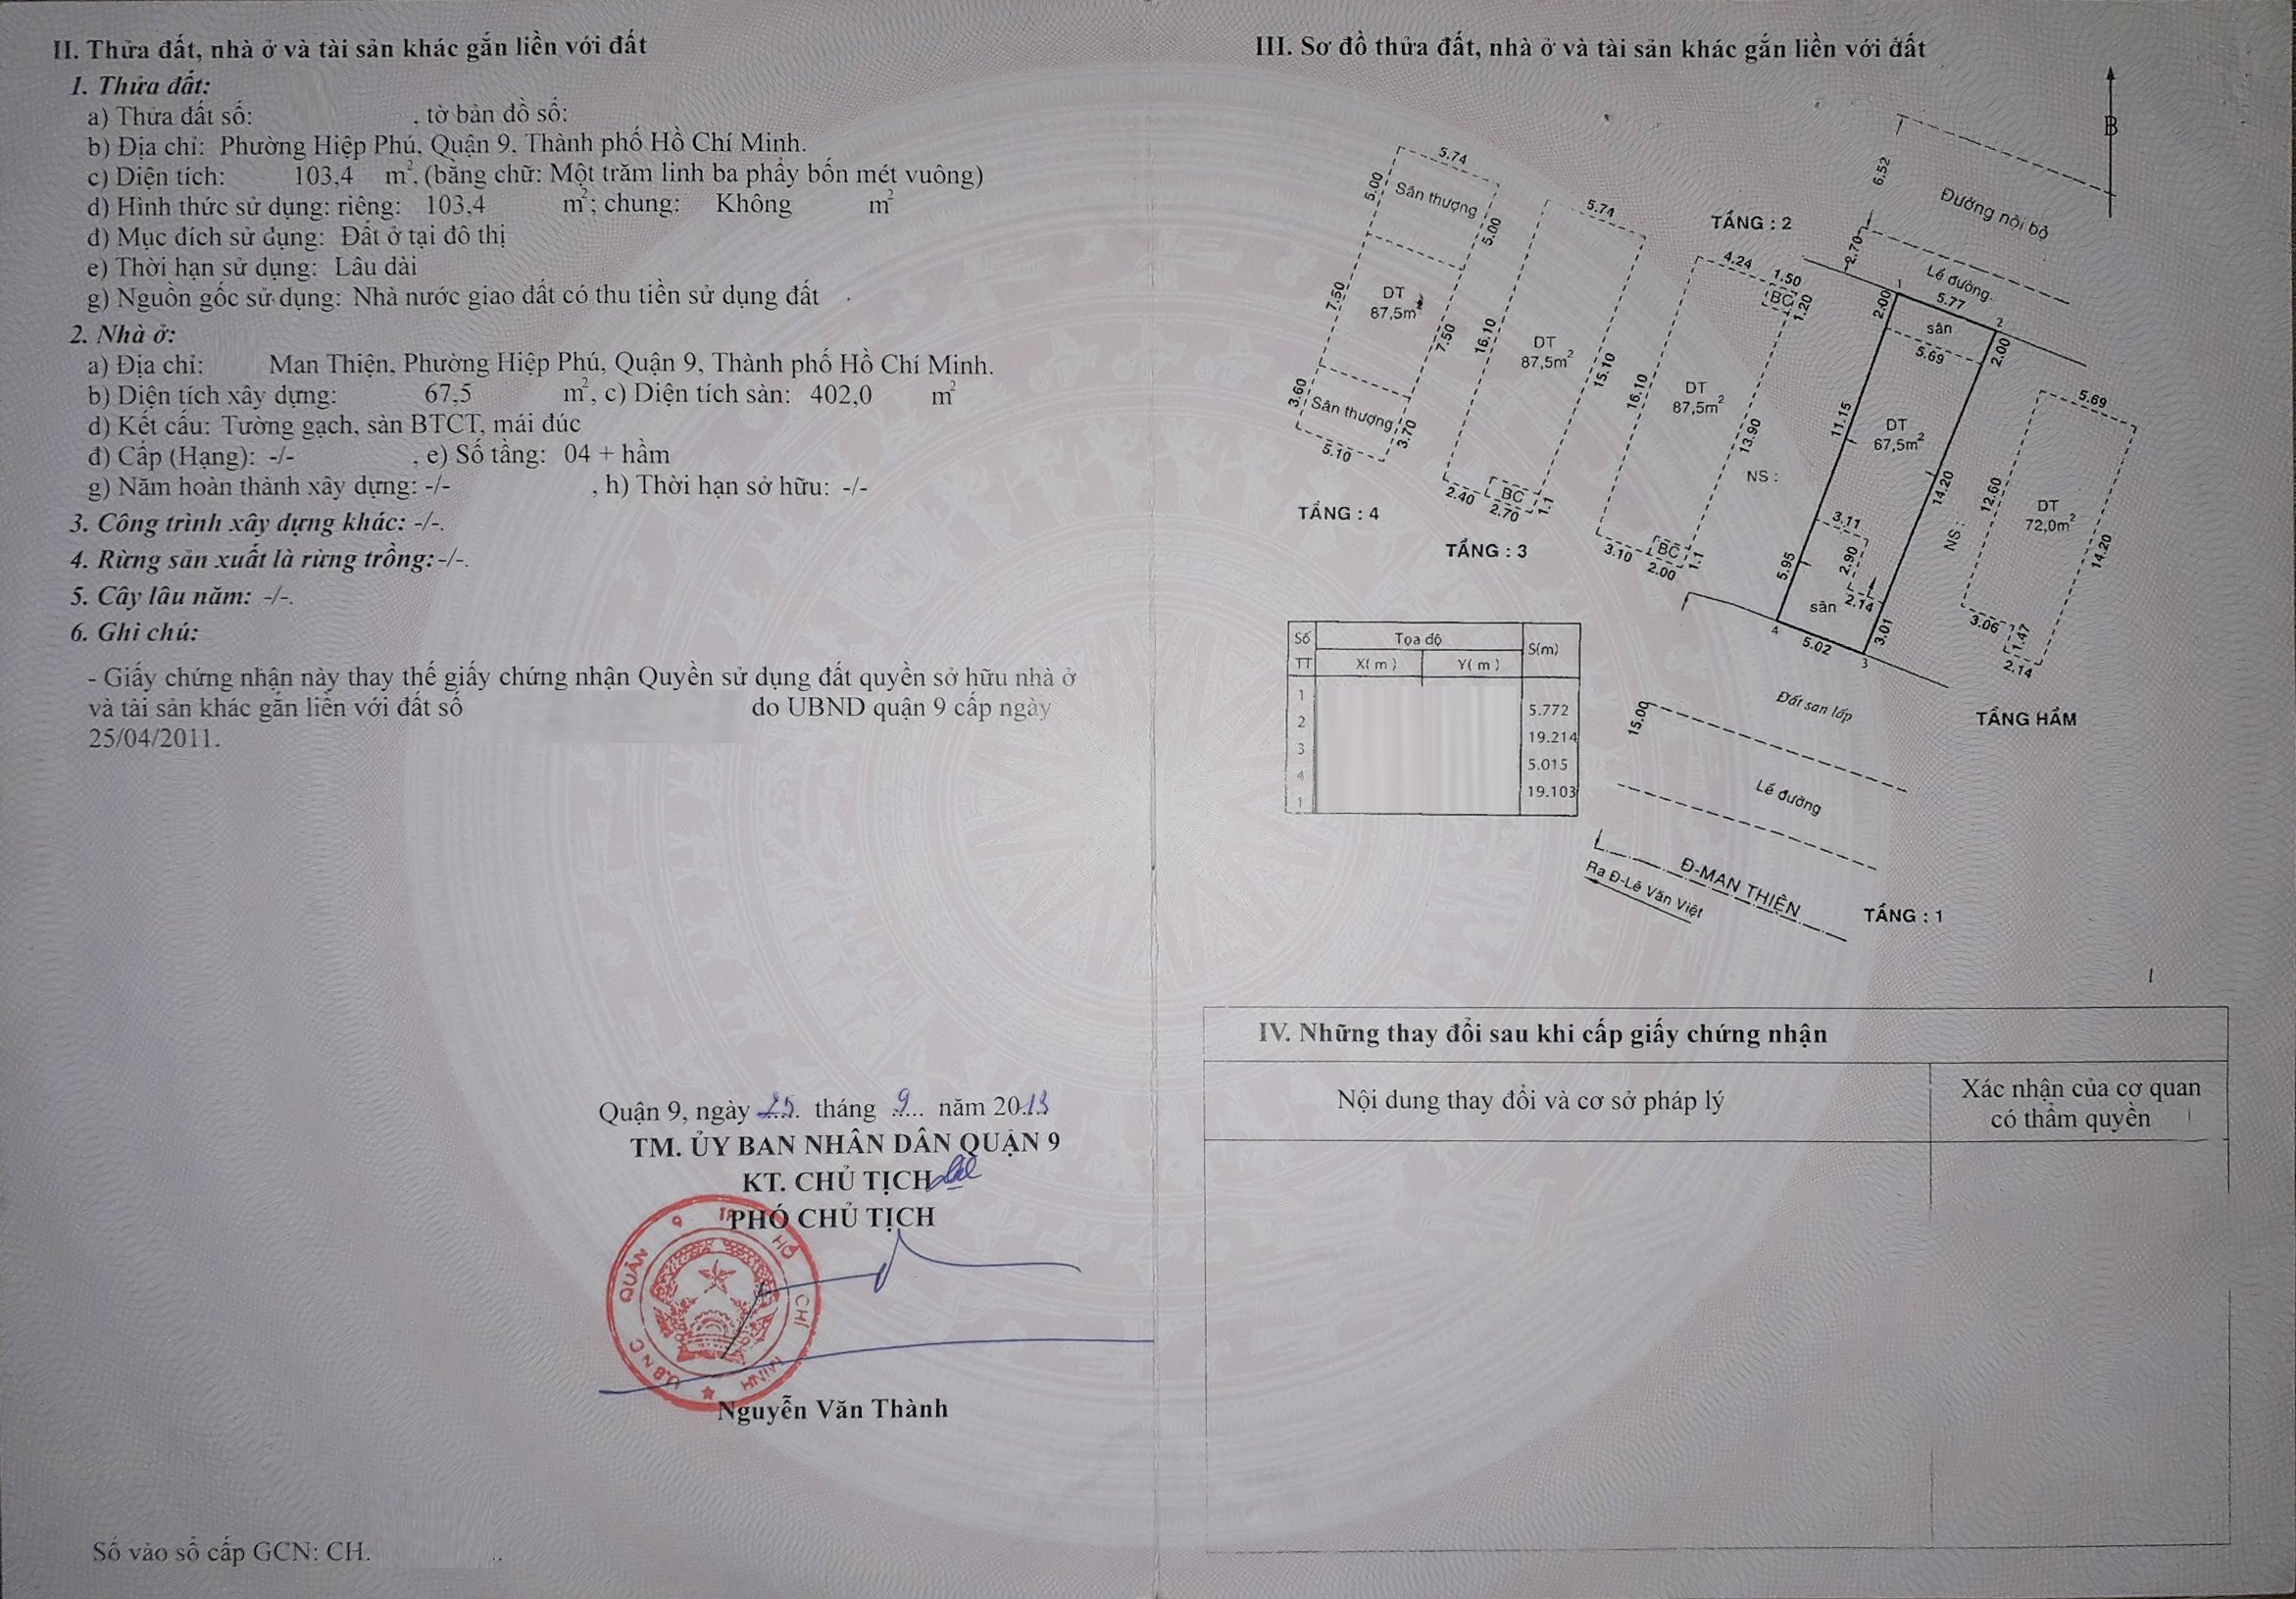 II. Thửa đất, nhà ở và tài sản khác gắn liền với đất
1. Thửa đất:
a) Thửa đất số: , tờ bản đồ số:
b) Địa chỉ: Phường Hiệp Phú, Quận 9, Thành phố Hồ Chí Minh.
c) Diện tích: 103,4 m², (bằng chữ: Một trăm linh ba phẩy bốn mét vuông)
d) Hình thức sử dụng: riêng: 103,4 m²; chung: Không m²
đ) Mục đích sử dụng: Đất ở tại đô thị
e) Thời hạn sử dụng: Lâu dài
g) Nguồn gốc sử dụng: Nhà nước giao đất có thu tiền sử dụng đất
2. Nhà ở:
a) Địa chỉ: Man Thiện, Phường Hiệp Phú, Quận 9, Thành phố Hồ Chí Minh.
b) Diện tích xây dựng: 67,5 m², c) Diện tích sàn: 402,0 m²
d) Kết cấu: Tường gạch, sàn BTCT, mái đúc
đ) Cấp (Hạng): -/- , e) Số tầng: 04 + hầm
g) Năm hoàn thành xây dựng: -/- , h) Thời hạn sở hữu: -/-
3. Công trình xây dựng khác: -/-.
4. Rừng sản xuất là rừng trồng: -/-.
5. Cây lâu năm: -/-.
6. Ghi chú:
- Giấy chứng nhận này thay thế giấy chứng nhận Quyền sử dụng đất quyền sở hữu nhà ở
và tài sản khác gắn liền với đất số do UBND quận 9 cấp ngày
25/04/2011.
Quận 9, ngày 25 tháng 9 năm 2013
TM. ỦY BAN NHÂN DÂN QUẬN 9
KT. CHỦ TỊCH
PHÓ CHỦ TỊCH
U.B.N.D QUẬN 9 TP HỒ CHÍ MINH
Nguyễn Văn Thành
Số vào sổ cấp GCN: CH.
III. Sơ đồ thửa đất, nhà ở và tài sản khác gắn liền với đất
B
5.74
5.00
Sân thượng
5.00
7.50
DT
87,5m²
7.50
3.60
Sân thượng
3.70
5.10
TẦNG : 4
5.74
16.10
DT
87,5m²
15.10
2.40
BC
2.70
1.1
TẦNG : 3
TẦNG : 2
4.24
1.50
BC
1.20
16.10
DT
87,5m²
13.90
3.10
BC
2.00
1.1
6.52
Đường nội bộ
2.70
Lề đường
1
5.77
2
2.00
sân
5.69
2.00
11.15
DT
67,5m²
14.20
NS :
NS :
3.11
2.90
5.95
sân
2.14
3.01
4
5.02
3
5.69
12.60
DT
72,0m²
14.20
3.06
1.47
2.14
TẦNG HẦM
Đất san lấp
15.00
Lề đường
Đ-MAN THIỆN
Ra Đ-Lê Văn Việt
TẦNG : 1
Số TT Tọa độ S(m)
X( m ) Y( m )
1
5.772
2
19.214
3
5.015
4
19.103
1
IV. Những thay đổi sau khi cấp giấy chứng nhận
Nội dung thay đổi và cơ sở pháp lý
Xác nhận của cơ quan
có thẩm quyền